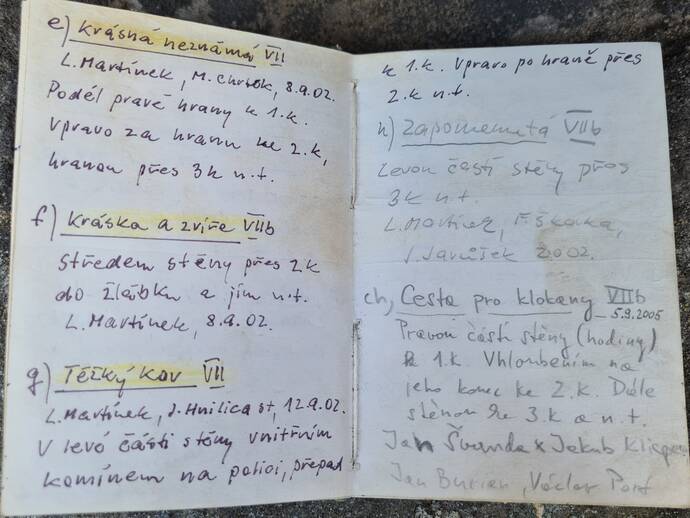 e) Krásná neznámá VII
L. Martínek, M. Chrtek, 8.9.02.
Podél pravé hrany k 1.k.
Vpravo za hranu ke 2.k,
hranou přes 3k n.t.
f) Kráska a zvíře VIIb
Středem stěny přes 2.k
do žlábku a jím n.t.
L. Martínek, 8.9.02.
g) Těžký kov VII
L. Martínek, J. Hnilica st, 12.9.02.
V levé části stěny vnitřním
komínem na polici, přepad
k 1.k. Vpravo po hraně přes
2.k n.t.
h) Zapomenutá VIIb
Levou částí stěny přes
3k n.t.
L. Martínek,
2002.
ch) Cesta pro klokany VIIb
5.9.2005
Pravou částí stěny (hodiny)
k 1.k. Vhloubením na
jeho konec ke 2.k. Dále
stěnou ke 3.k a n.t.
Jan Švanda x Jakub
Jan Burian, Václav